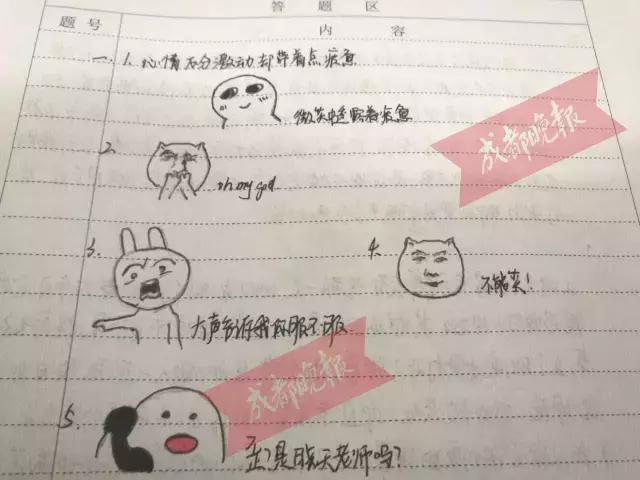 答题区
题号 内容
一. 1. 心情不分激动却带着点疲惫
微笑中透露着疲惫
2.
oh my god
3.
大声告诉我你服不服
4.
不能笑!
5.
歪?是聊天老师吗?
成都晚报
成都晚报